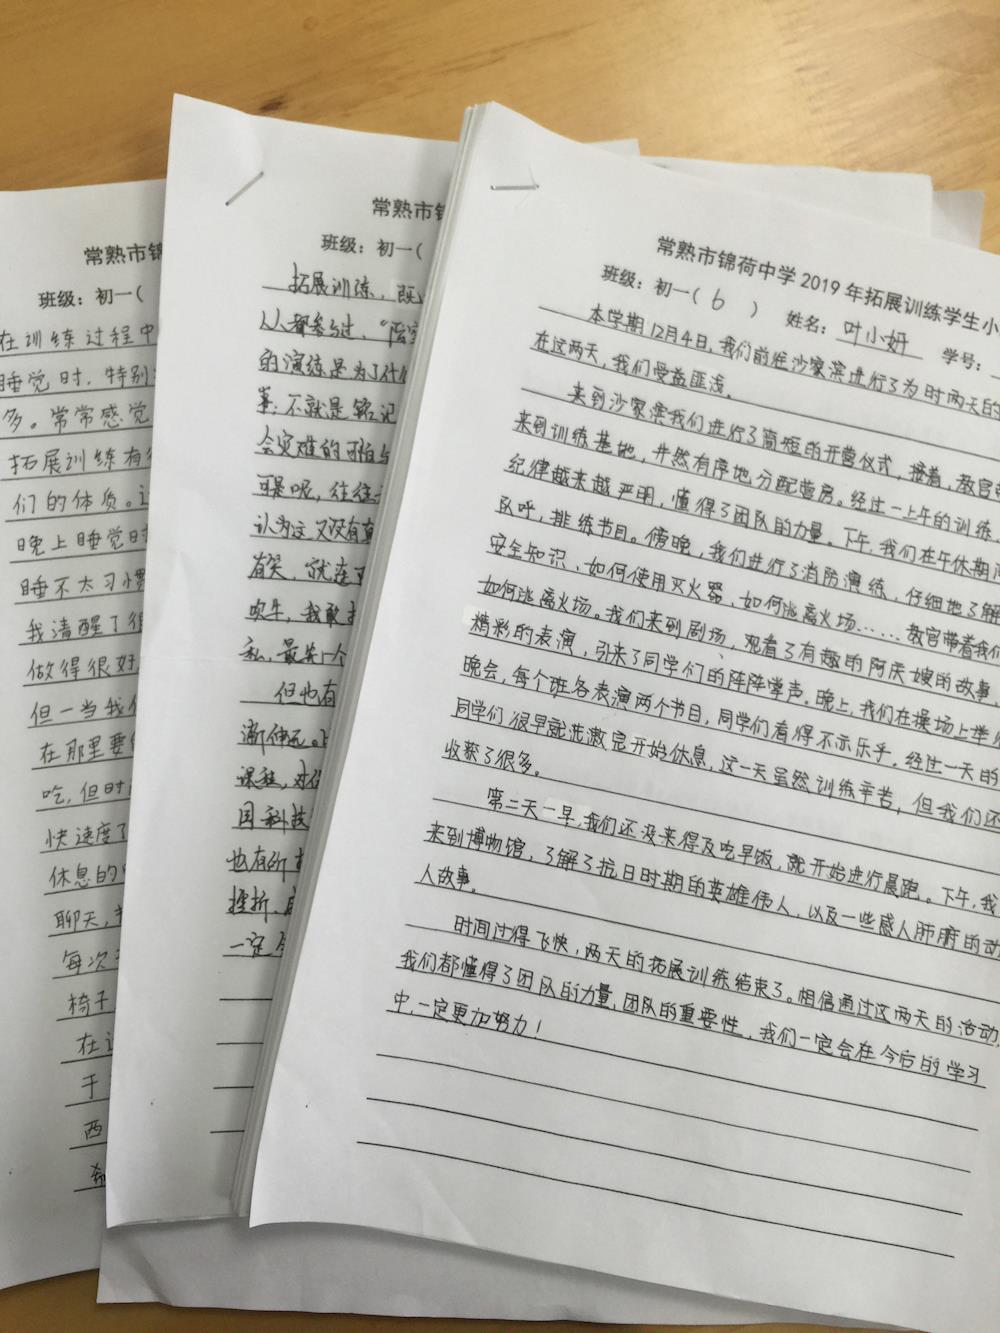 常熟市锦
班级：初一（
在训练过程中
睡觉时，特别
多。常常感觉
拓展训练有
们的体质。
晚上睡觉时
睡不太习惯
我清醒了很
做得很好
但一当我
在那里要
吃，但时
快速度了
休息的
聊天，
每次
椅子
在
于
西
常熟市锦
班级：初一（
拓展训练，既
人人都参与过，“
的演练是为了什
事，不就是铭记
会灾难的可怕与
可是呢，往往
认为这又没有真
有笑，就连
吹牛，我敢
私，最先一个
但也有
渐伸远。
课程，对
国科技
也有所
挫折，
一定
常熟市锦荷中学2019年拓展训练学生小
班级：初一（6） 姓名：叶小妍 学号：
本学期12月4日，我们前往沙家浜进行了为时两天的
在这两天，我们受益匪浅。
来到沙家浜我们进行了简短的开营仪式，接着，教官
来到训练基地，井然有序地分配营房。经过一上午的训练
纪律越来越严明，懂得了团队的力量。下午，我们在午休期间
队呼，排练节目。傍晚，我们进行了消防演练，仔细地了解
安全知识，如何使用灭火器、如何逃离火场……教官带着我们
如何逃离火场。我们来到剧场，观看了有趣的阿庆嫂的故事，
精彩的表演，引来了同学们的阵阵掌声。晚上，我们在操场上举
晚会，每个班各表演两个节目，同学们看得不亦乐乎。经过一天的
同学们很早就洗漱完开始休息，这一天虽然训练辛苦，但我们还
收获了很多。
第二天一早，我们还没来得及吃早饭，就开始进行晨跑。下午，我
来到博物馆，了解了抗日时期的英雄伟人，以及一些感人肺腑的动
人故事。
时间过得飞快，两天的拓展训练结束了。相信通过这两天的活动，
我们都懂得了团队的力量，团队的重要性，我们一定会在今后的学习
中，一定更加努力！